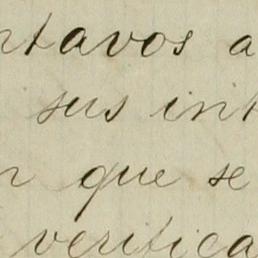 ntavos a
sus int
n que se
verifica